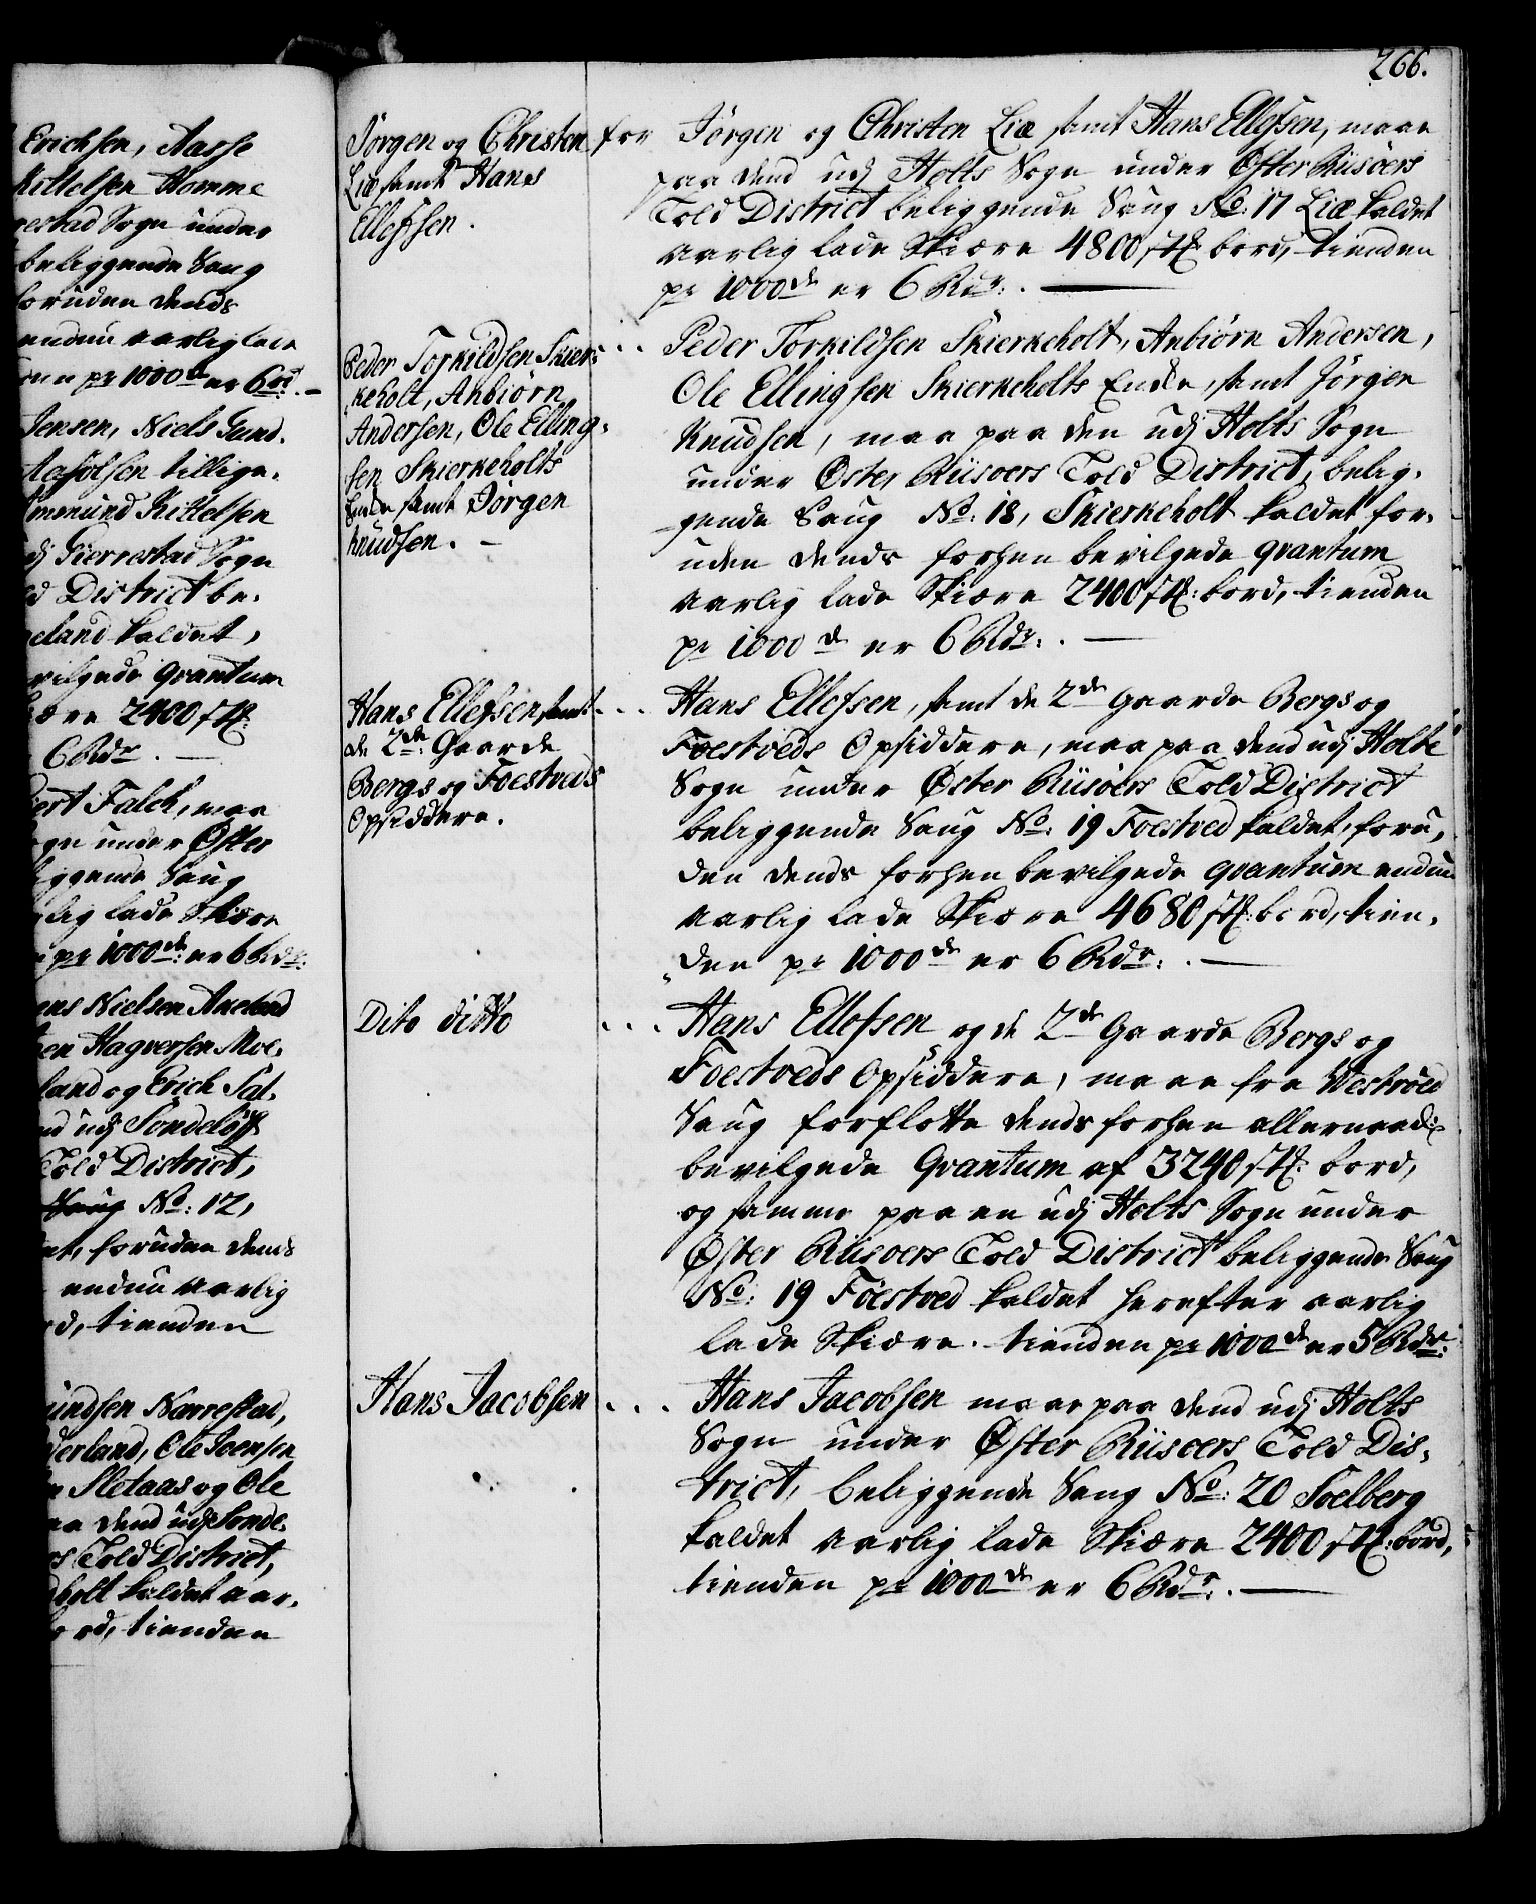 266.
Erichsen, Aasse
Kittelsen Homme
gestad Sogn under
beliggende Saug
foruden dends
endnu aarlig lade
pr 1000de er 6 rd. –
Jensen, Niels Gund-
Aasolsen tillige-
Amund Kittelsen
udj Gierrestad Sogn
District be-
eland kaldet,
bevilgede qvantum
2400 stk:
6 Rdr. —
Falch, maa
Sogn under Øster
beliggende Saug
aarlig lade Skiære
pr 1000de: er 6 Rdr:
Nielsen Aaeland
Hagversen Moe-
land og Erich Sal-
udj Sondeløff
Told District,
Saug No: 12,
foruden dends
endnu aarlig
tienden
Navrestad,
derland, Ole Joensen
Sletaas og Ole
paa dend udj Sonde-
Told District,
holt kaldet aar-
bord, tienden
Jørgen og Christen
Liæ samt Hans
Ellefsen.
for Jørgen og Christen Liæ samt Hans Ellefsen, maae
paa dend udj Holts Sogn under Øster Riisøers
Told District beliggende Saug No: 17 Liæ kaldet
aarlig lade Skiære 4800 stk: bord, tienden
pr 1000de er 6 Rdr: . —
Peder Torkildsen Skier-
keholt, Anbiørn
Andersen, Ole Elling-
sen Skierkeholts
Enke samt Jørgen
Knudsen. –
... Peder Torkildsen Skierkeholt, Anbiørn Andersen,
Ole Ellingsen Skierkeholts Enke, samt Jørgen
Knudsen, maa paa den udj Holts Sogn
under Øster Riisøers Told District, belig-
gende Saug No: 18, Skierkeholt kaldet for-
uden dends forhen bevilgede qvantum
aarlig lade Skiære 2400 stk: bord, tienden
pr 1000de er 6 Rdr: . —
Hans Ellefsen samt
de 2de: Gaarde
Bergs og Foestveds
Opsiddere.
... Hans Ellefsen, samt de 2de Gaarde Bergs og
Foestveds Opsiddere, maa paa dend udj Holts
Sogn under Øster Riisøers Told District
beliggende Saug No: 19 Foestved kaldet, foru-
den dends forhen bevilgede qvantum endnu
aarlig lade Skiære 4680 stk: bord, tien-
den pr 1000de er 6 Rdr: . —
Dito ditto
... Hans Ellefsen og de 2de Gaarde Bergs og
Foestveds Opsiddere, maae fra Westrøed
Saug forflotte dends forhen allernaad:
bevilgede Qvantum af 3240 stk: bord,
og samme paa en udj Holts Sogn under
Øster Riisøers Told District beliggende Saug
No: 19 Foestved kaldet herefter aarlig
lade Skiære. tienden pr 1000de er 5 Rdr:
Hans Jacobsen
... Hans Jacobsen maae paa dend udj Holts
Sogn under Øster Riisøers Told Dis-
trict, beliggende Saug No: 20 Soelberg
kaldet aarlig lade Skiære 2400 stk: bord,
tienden pr 1000de er 6 Rdr: . —